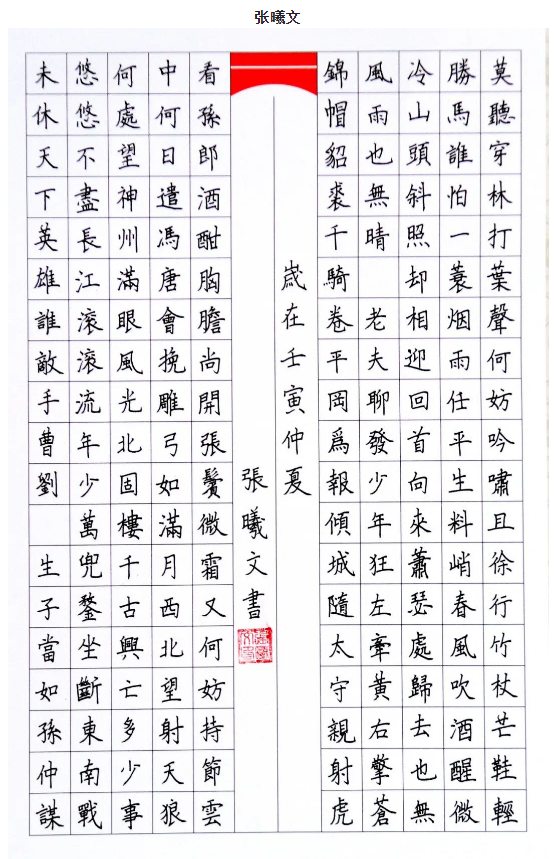 张曦文
莫聽穿林打葉聲何妨吟嘯且徐行竹杖芒鞋輕
勝馬誰怕一蓑烟雨任平生料峭春風吹酒醒微
冷山頭斜照却相迎回首向來蕭瑟處歸去也無
風雨也無晴 老夫聊發少年狂左牽黃右擎蒼
錦帽貂裘千騎卷平岡爲報傾城隨太守親射虎
歲在壬寅仲夏
張曦文書
看孫郎酒酣胸膽尚開張鬢微霜又何妨持節雲
中何日遣馮唐會挽雕弓如滿月西北望射天狼
何處望神州滿眼風光北固樓千古興亡多少事
悠悠不盡長江滾滾流年少萬兜鍪坐斷東南戰
未休天下英雄誰敵手曹劉 生子當如孫仲謀